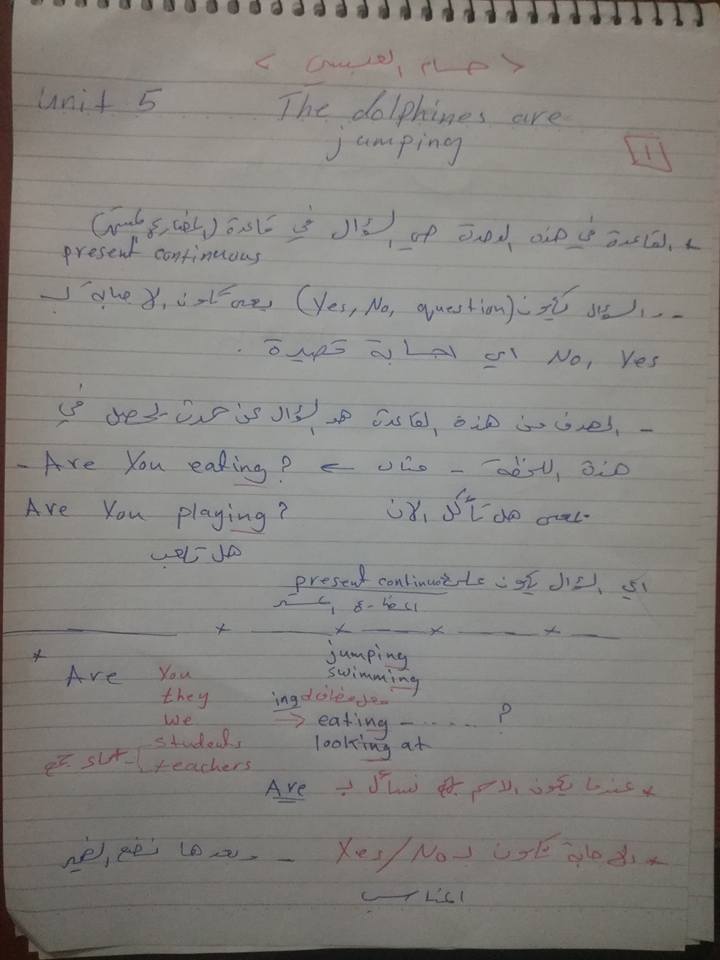 < حسام العبسي >
Unit 5 The dolphines are
jumping
1
* القاعدة في هذه الوحدة هي السؤال في قاعدة (المضارع المستمر)
present continuous
- والسؤال يكون (Yes, No, question) يعني تكون الاجابة بـ
No, Yes اي اجابة قصيرة .
- الهدف من هذه القاعدة هو السؤال عن حدث يحصل في
هذه اللحظة - مثال ← Are You eating? -
يعني هل تأكل الان Are You playing?
هل تلعب
اي السؤال يكون على present continuous
المضارع المستمر
jumping
* Are You swimming
they فعل مضاف له ing
we → eating ------ ?
students looking at
اسماء جمع teachers
* عندما يكون الاسم جمع نسأل بـ Are
* والاجابة تكون بـ Yes/No - وبعدها نضع الضمير
المناسب